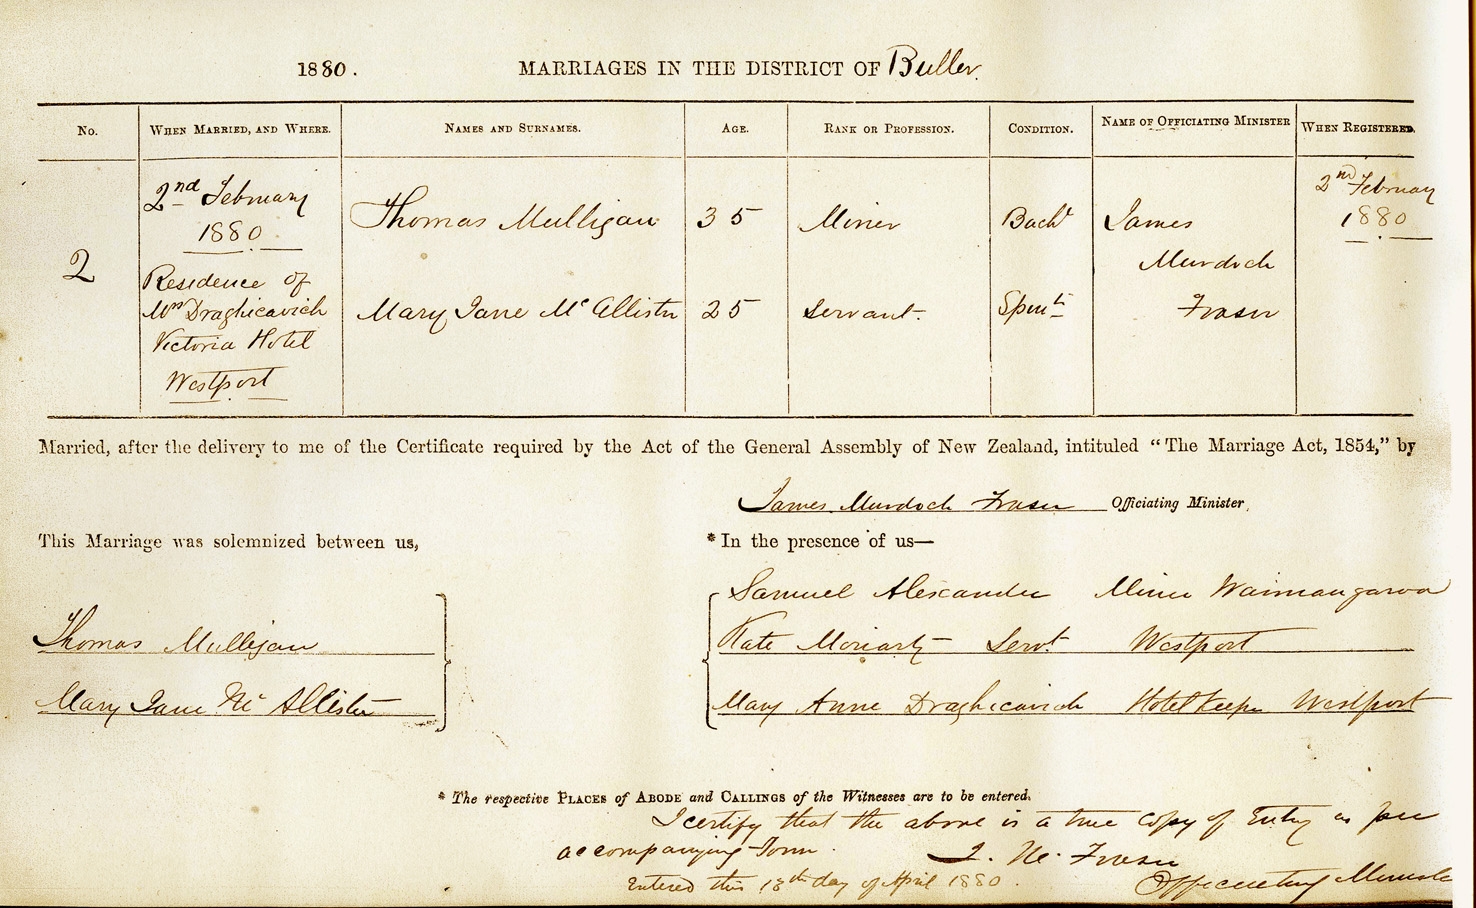 1880. MARRIAGES IN THE DISTRICT OF Buller.
No. WHEN MARRIED, AND WHERE. NAMES AND SURNAMES. AGE. RANK OR PROFESSION. CONDITION. NAME OF OFFICIATING MINISTER WHEN REGISTERED.
2
2nd February
1880
Residence of
Mrs Draghicavich
Victoria Hotel
Westport
Thomas Mulligan 35 Miner Bachr
Mary Jane McAllister 25 Servant. Spinr
James
Murdoch
Fraser
2nd February
1880
Married, after the delivery to me of the Certificate required by the Act of the General Assembly of New Zealand, intituled "The Marriage Act, 1854," by
James Murdoch Fraser Officiating Minister.
This Marriage was solemnized between us,
Thomas Mulligan
Mary Jane Mc Allister
* In the presence of us—
Samuel Alexander Miner Waimangaroa
Kate Moriarty Servt. Westport
Mary Anne Draghicavich Hotelkeeper Westport
* The respective PLACES of ABODE and CALLINGS of the Witnesses are to be entered.
I certify that the above is a true copy of Entry as per
accompanying Form.
J. M. Fraser
Officiating Minister
Entered this 13th day of April 1880.